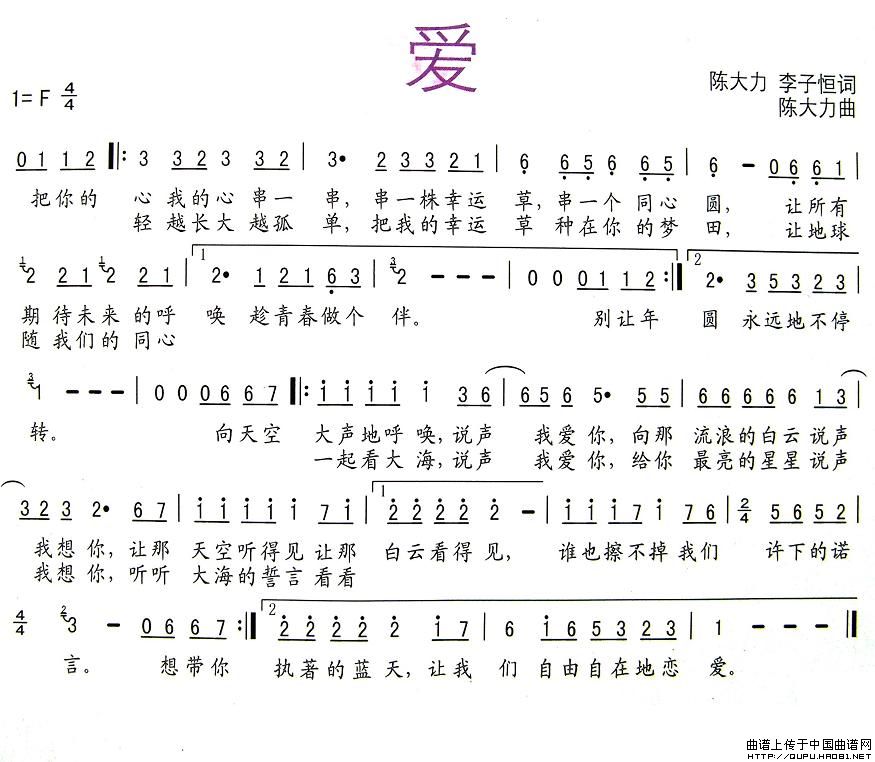 爱
陈大力 李子恒词
1= F 4/4
陈大力曲
0 1 1 2 ‖: 3 3 2 3 3 2 | 3• 2 3 3 2 1 | 6 6 5 6 6 5 | 6 – 0 6 6 1 |
把你的 心 我的心 串一 串, 串一株幸运 草, 串一个 同心 圆, 让所有
轻 越长大 越孤 单, 把我的幸运 草 种在你 的梦 田, 让地球
1 2 2 1 1 2 2 1 | 1 2• 1 2 1 6 3 | 3 2 – – – | 0 0 0 1 1 2 :‖ 2 2• 3 5 3 2 3 |
期 待未来 的呼 唤 趁青春做个 伴。 别让年 圆 永远地不停
随 我们的 同心
3 1 – – – | 0 0 0 6 6 7 ‖: i i i i i 3 6 | 6 5 6 5• 5 5 | 6 6 6 6 6 1 3 |
转。 向天空 大声地呼 唤,说声 我爱你,向那 流浪的白云说声
一起看大海,说声 我爱你,给你 最亮的星星说声
3 2 3 2• 6 7 | i i i i i 7 i | 1 2 2 2 2 2 – | i i i i 7 7 6 | 2/4 5 6 5 2 |
我想你,让那 天空听得见让那 白云看得见, 谁也擦不掉我们 许下的诺
我想你,听听 大海的誓言看看
4/4 2 3 – 0 6 6 7 :‖ 2 2 2 2 2 2 i 7 | 6 i 6 5 3 2 3 | 1 – – – ‖
言。 想带你 执著的蓝天,让我 们 自由自在地恋 爱。
曲谱上传于中国曲谱网
HTTP://QUPU.HAO81.NET